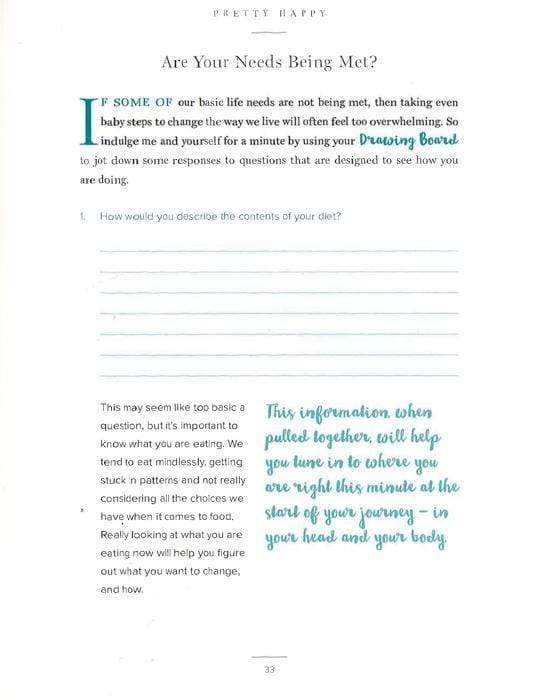 PRETTY HAPPY
Are Your Needs Being Met?
IF SOME OF our basic life needs are not being met, then taking even
baby steps to change the way we live will often feel too overwhelming. So
indulge me and yourself for a minute by using your Drawing Board
to jot down some responses to questions that are designed to see how you
are doing.
1. How would you describe the contents of your diet?
This may seem like too basic a
question, but it's important to
know what you are eating. We
tend to eat mindlessly, getting
stuck in patterns and not really
considering all the choices we
have when it comes to food.
Really looking at what you are
eating now will help you figure
out what you want to change,
and how.
This information, when
pulled together, will help
you tune in to where you
are right this minute at the
start of your journey – in
your head and your body.
33